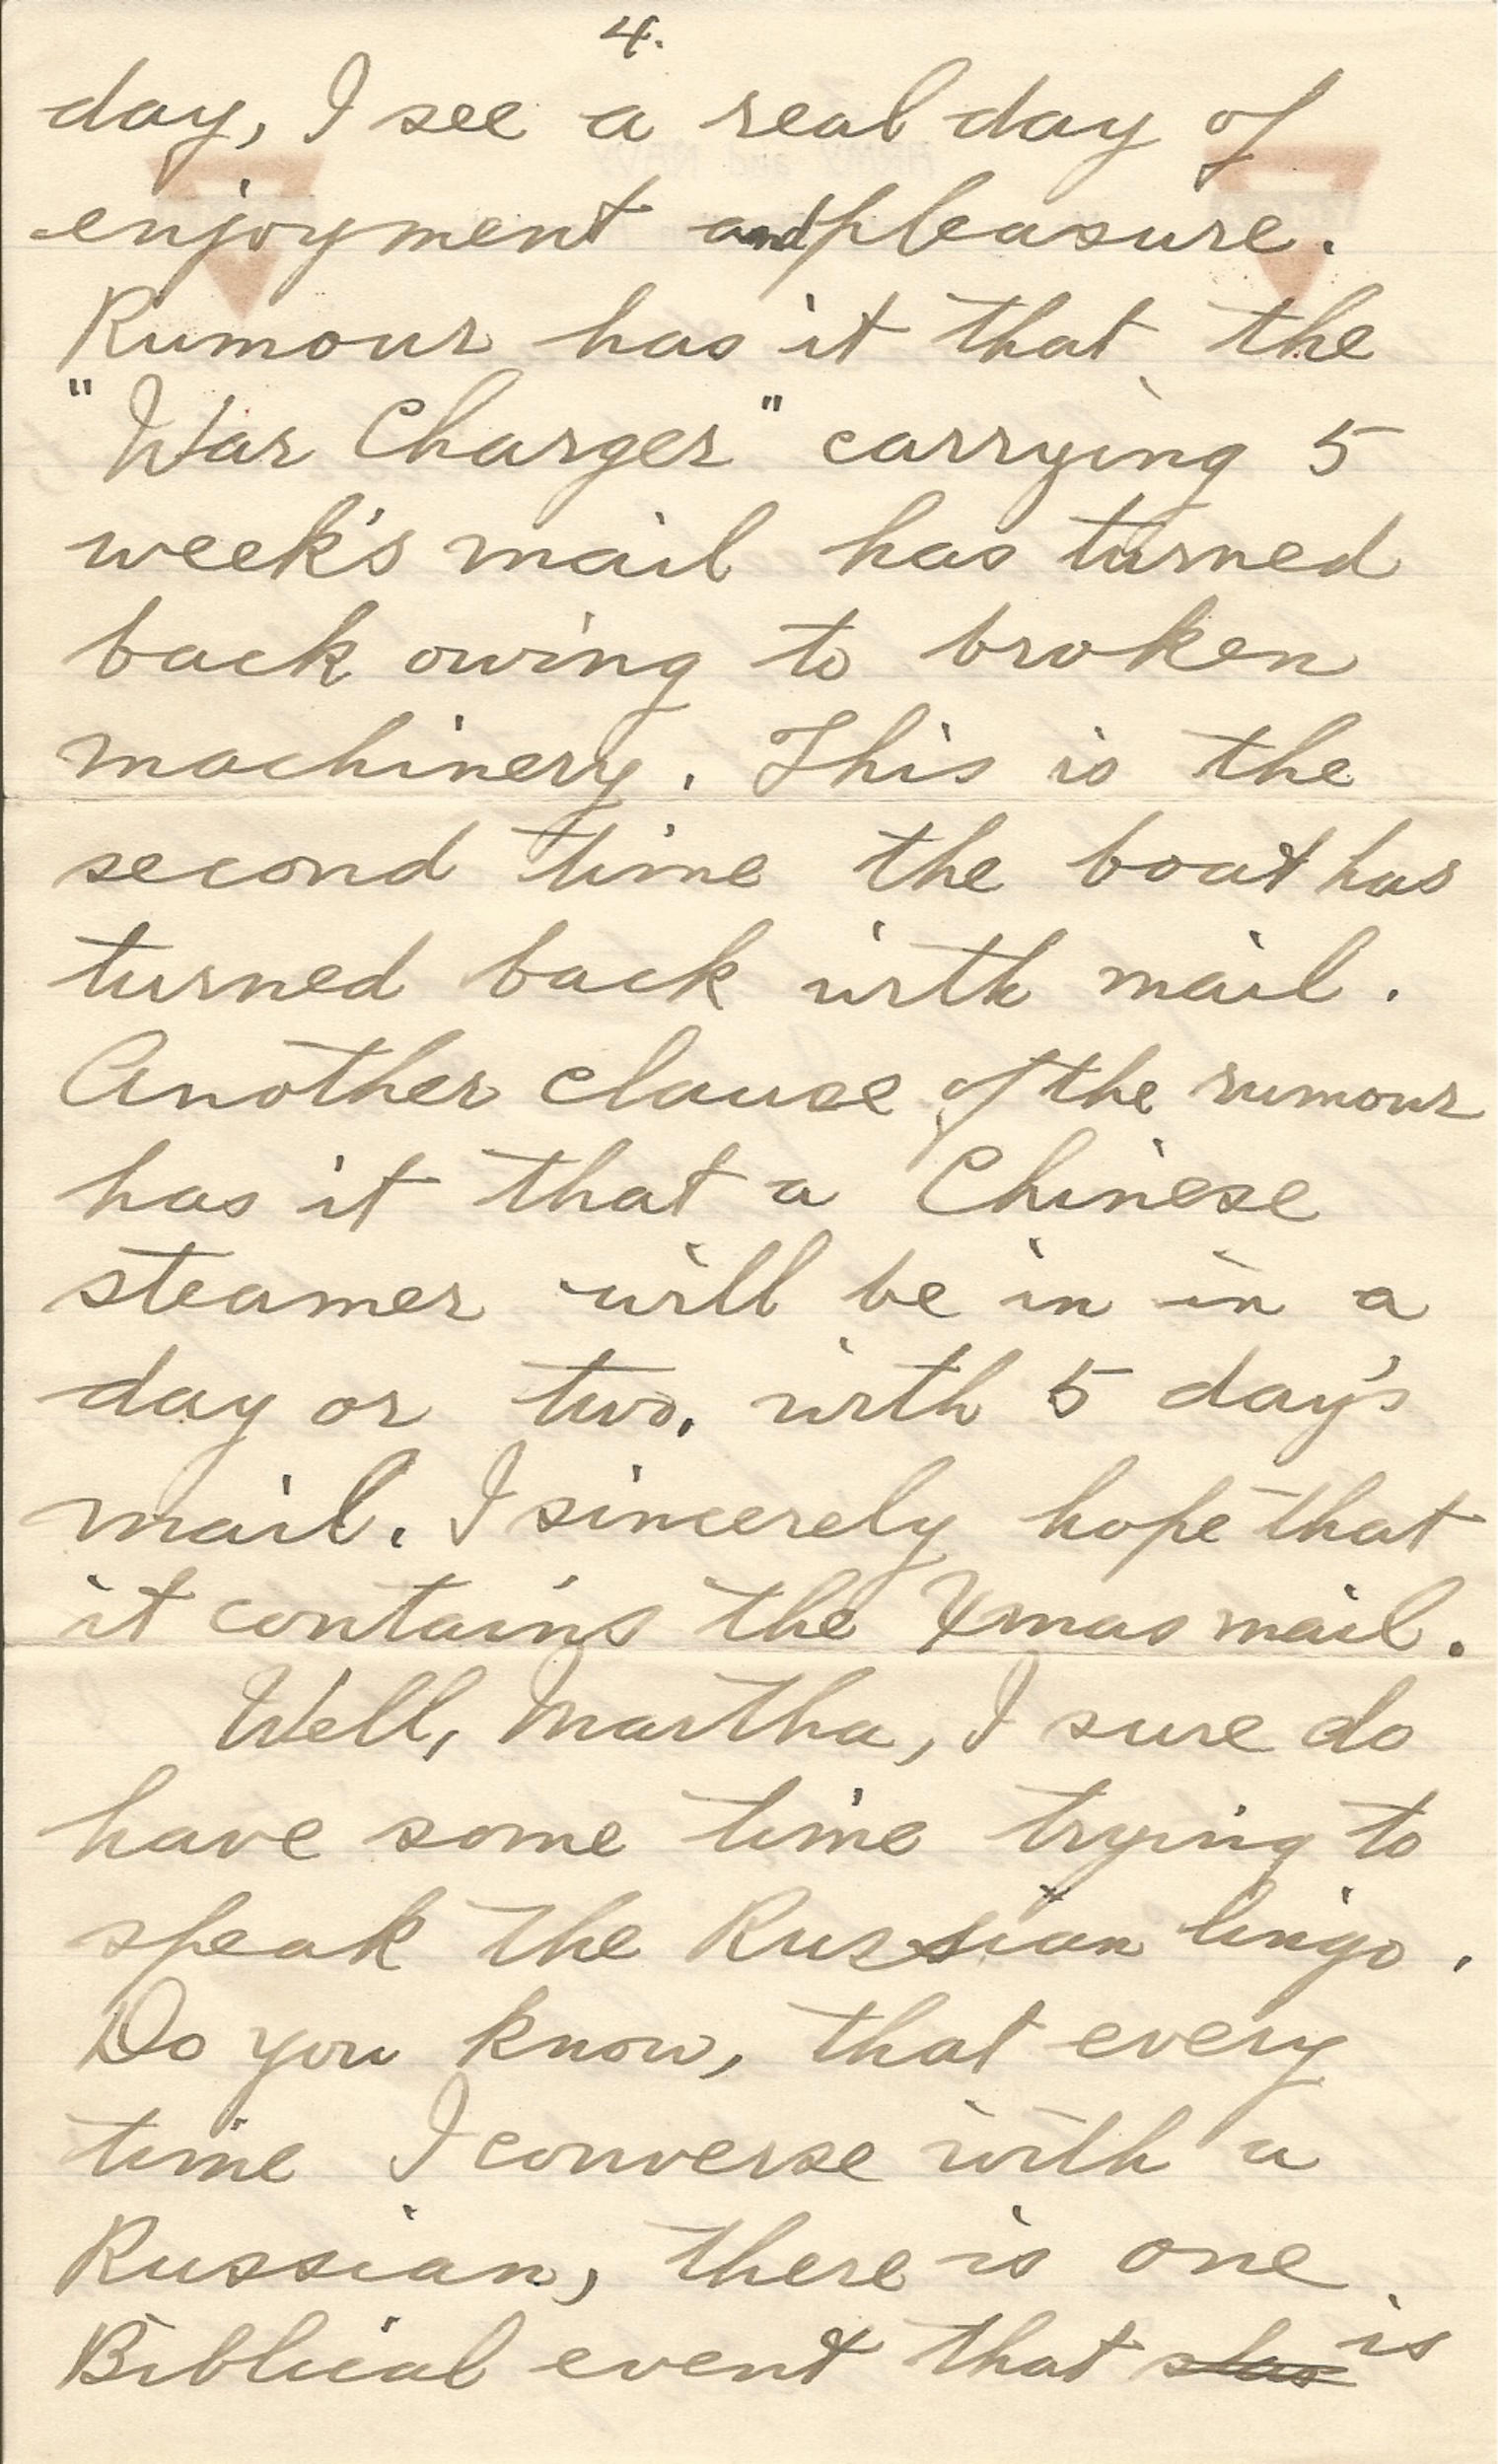 4.
day, I see a real day of
enjoyment and pleasure.
Rumour has it that the
"War Charger" carrying 5
week's mail has turned
back owing to broken
machinery. This is the
second time the boat has
turned back with mail.
Another clause of the rumour
has it that a Chinese
steamer will be in in a
day or two, with 5 day's
mail. I sincerely hope that
it contains the Xmas mail.
Well, Martha, I sure do
have some time trying to
speak the Russian lingo.
Do you know, that every
time I converse with a
Russian, there is one
Biblical event that is